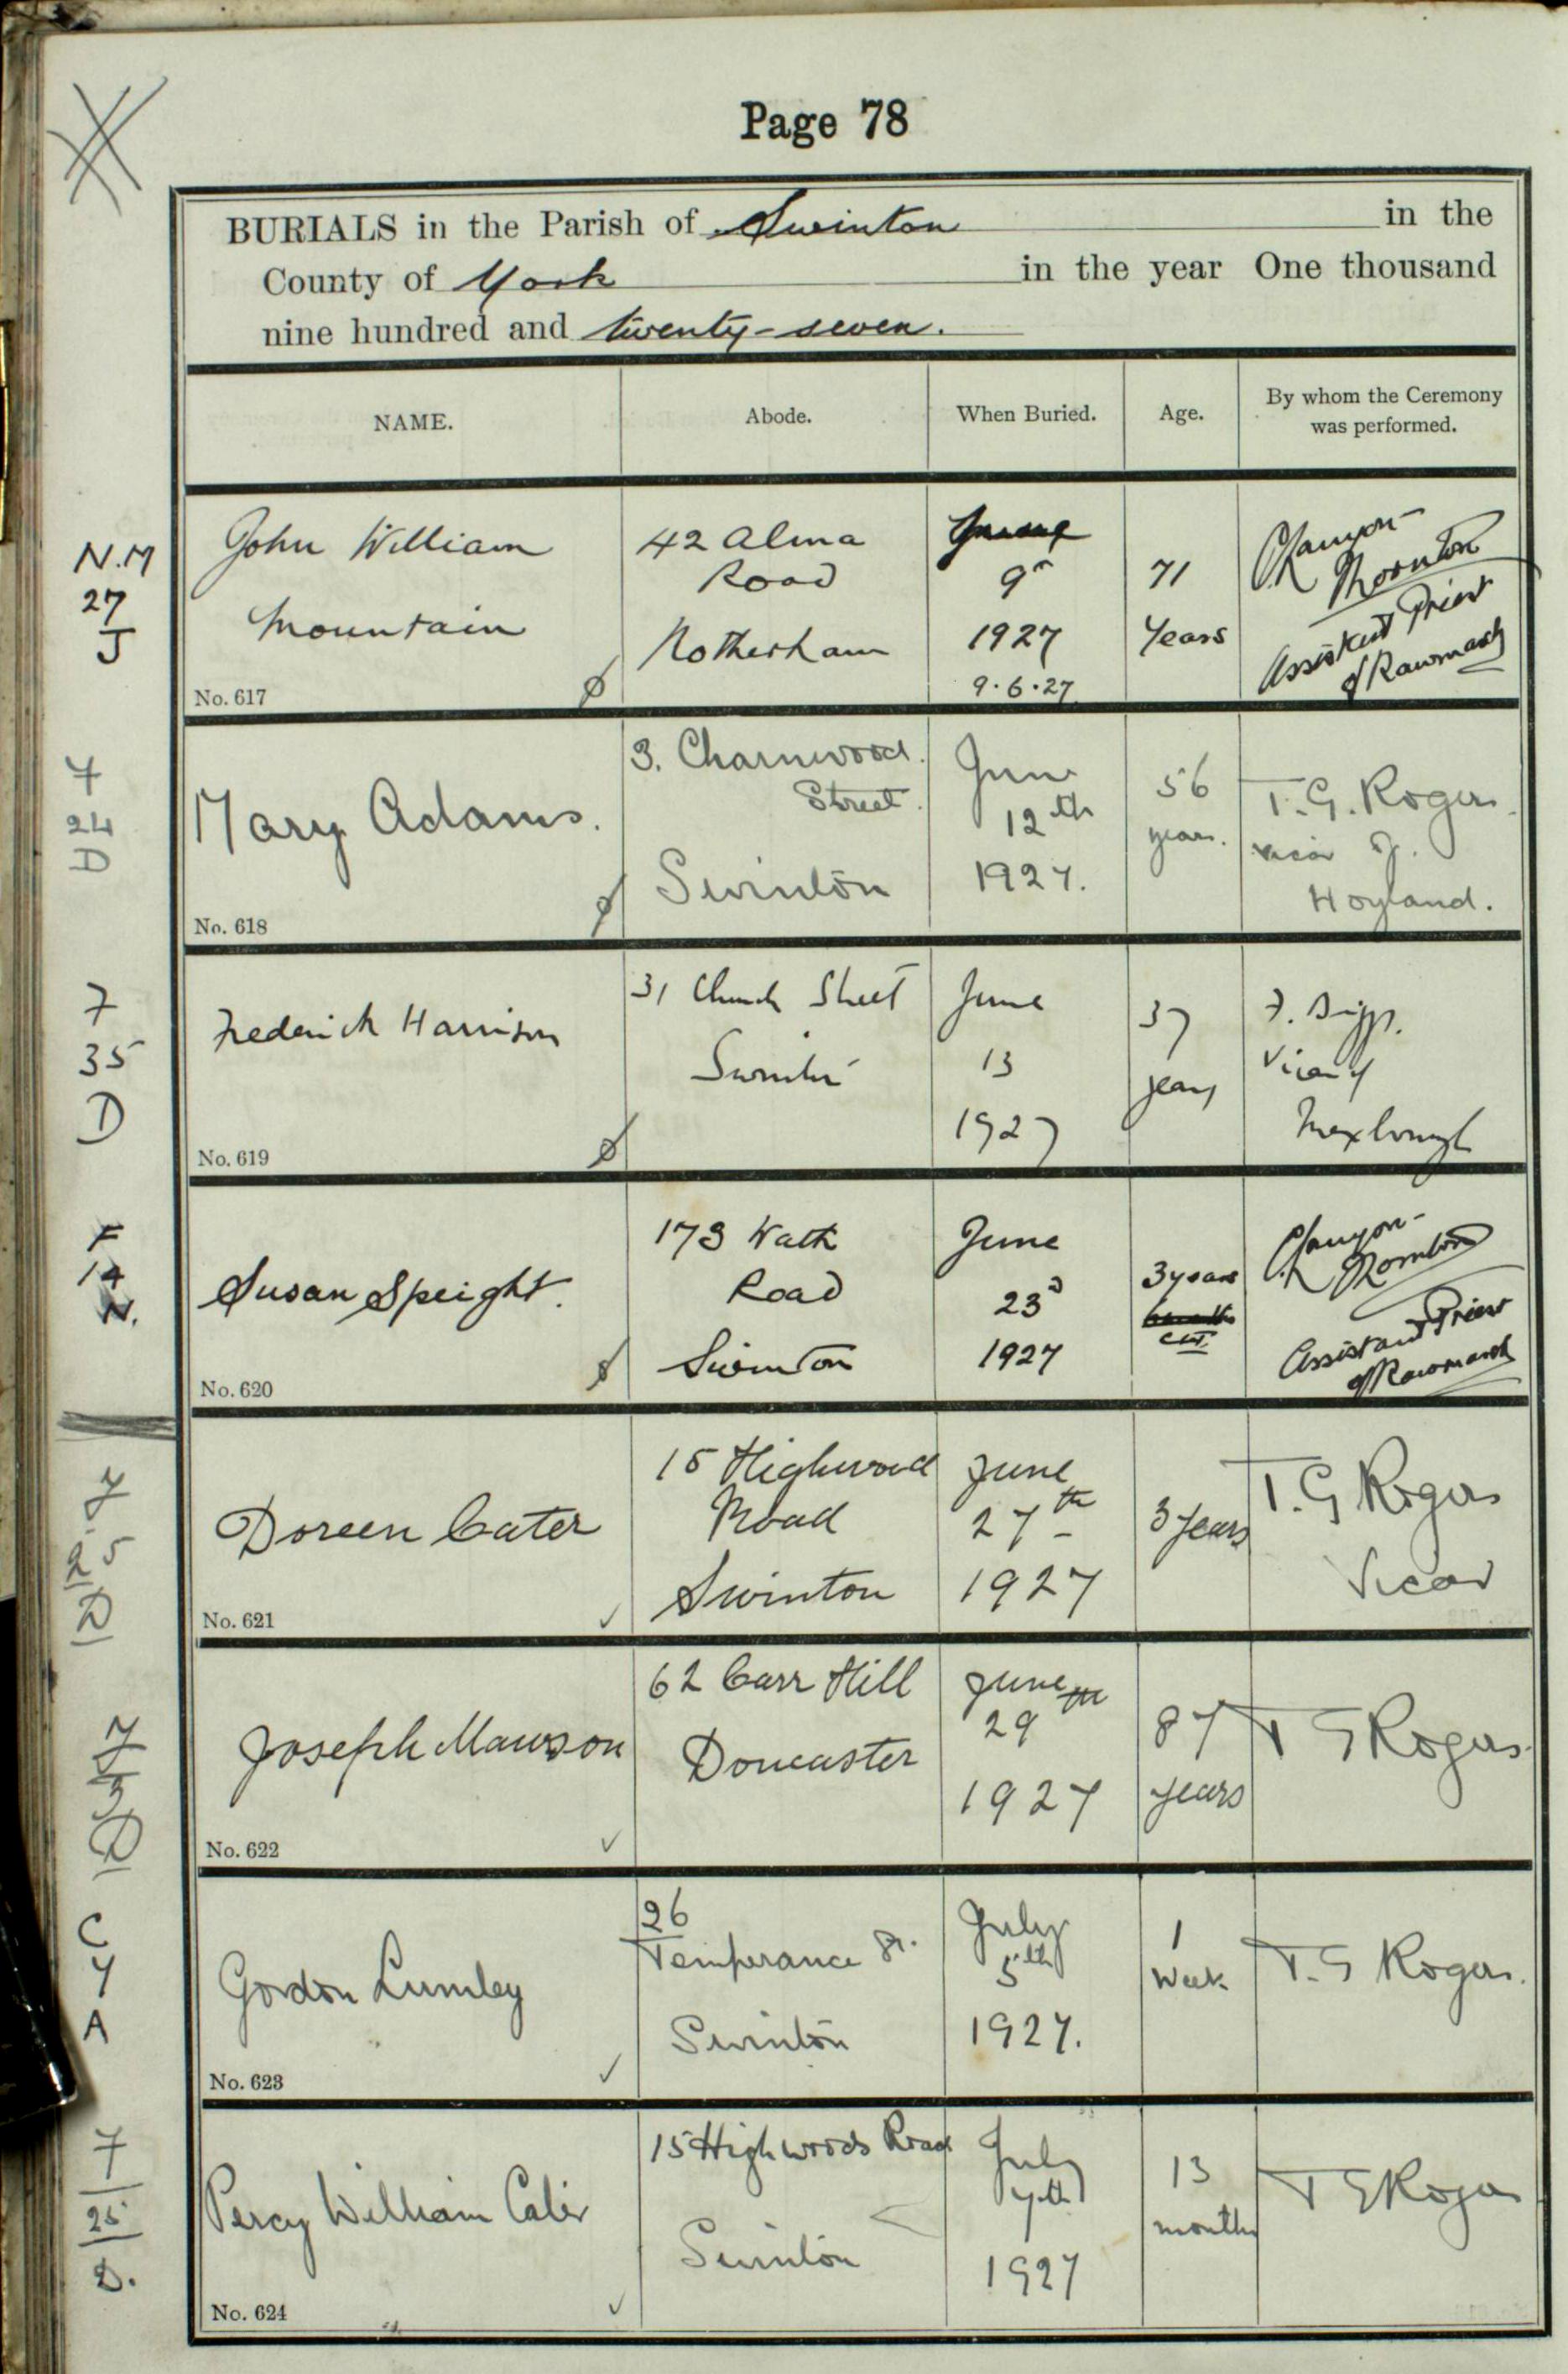 Page 78
BURIALS in the Parish of Swinton in the
County of York in the year One thousand
nine hundred and twenty-seven.
NAME. Abode. When Buried. Age. By whom the Ceremony was performed.
N.M
27
J
John William
Mountain
No. 617
42 Alma
Road
Rotherham
June
9th
1927
9.6.27
71
Years
Thornton
Assistant Priest
of Rawmarsh
7
24
D
Mary Adams.
No. 618
3. Charnwood
Street.
Swinton
June
12th
1927.
56
years.
T. G. Rogers.
Vicar of
Hoyland.
7
35
D
Frederick Harrison
No. 619
31 Church Street
Swinton
June
13
1927
37
years
Vicar of
Mexborough
F
14
N.
Susan Speight.
No. 620
173 Wath
Road
Swinton
June
23d
1927
3 years
Thornton
Assistant Priest
of Rawmarsh
7
25
D
Doreen Cater
No. 621
15 Highwood
Road
Swinton
June
27th
1927
3 years
T. G Rogers
Vicar
7
3
D
Joseph Mawson
No. 622
62 Carr Hill
Doncaster
June
29th
1927
87
years
T G Rogers.
C
4
A
Gordon Lumley
No. 623
26
Temperance St.
Swinton
July
5th
1927.
1
Week
T. G Rogers.
7
25
D.
Percy William Cater
No. 624
15 Highwoods Road
Swinton
July
7th
1927
13
months
T G Rogers